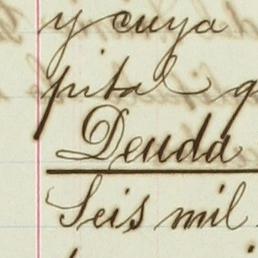 y cuya
pital q
Deuda
Seis mil